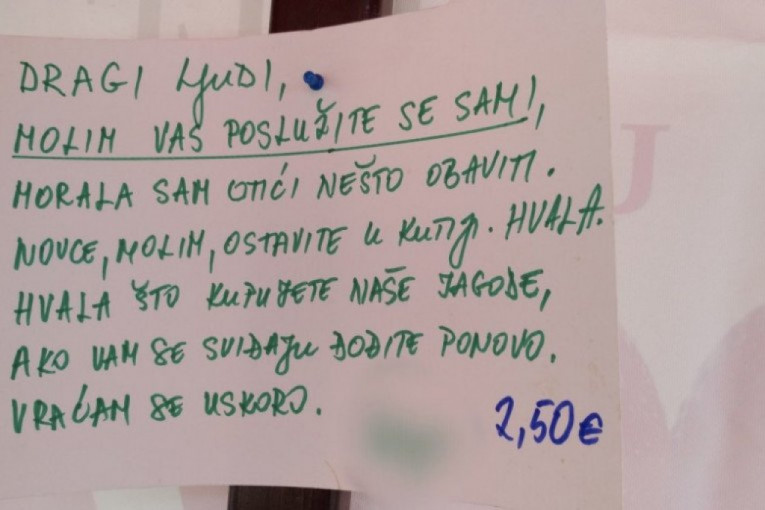 DRAGI LJUDI,
MOLIM VAS POSLUŽITE SE SAMI,
MORALA SAM OTIĆI NEŠTO OBAVITI.
NOVCE, MOLIM, OSTAVITE U KUTIJI. HVALA.
HVALA ŠTO KUPUJETE NAŠE JAGODE,
AKO VAM SE SVIĐAJU ĐOĐITE PONOVO.
VRAĆAM SE USKORO.
2,50€
J